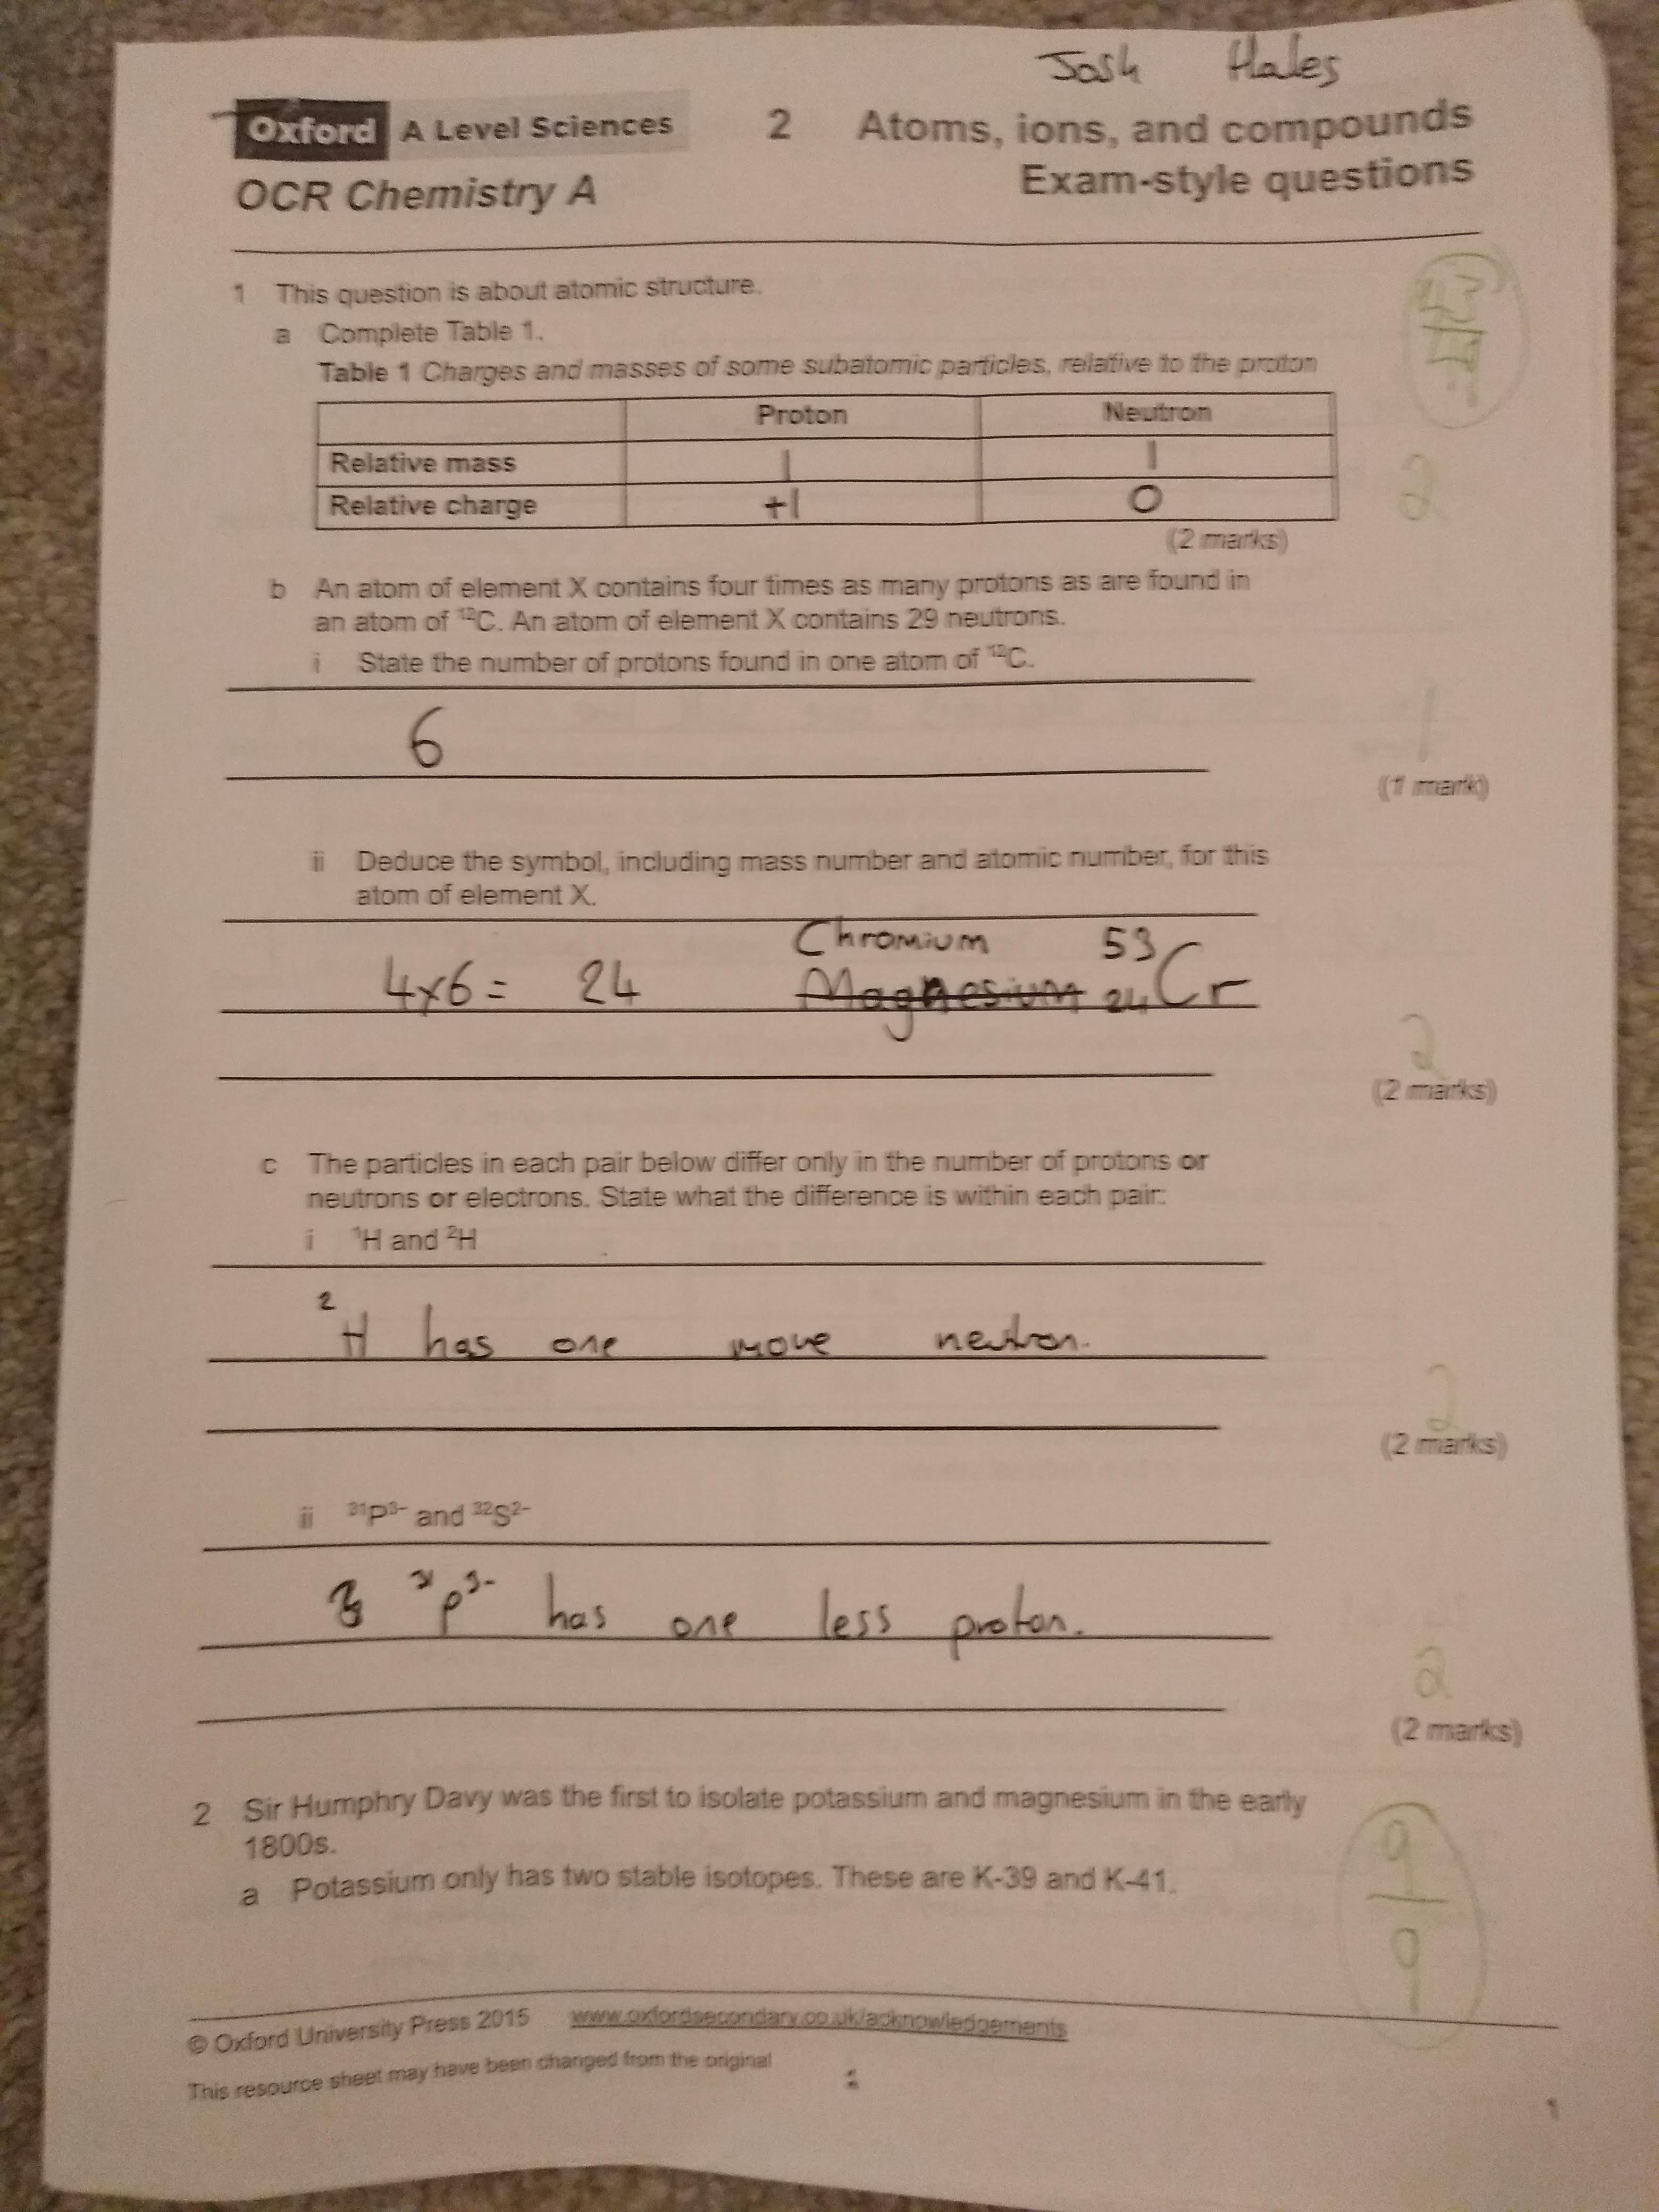 Josh Hales
Oxford A Level Sciences
2 Atoms, ions, and compounds
OCR Chemistry A
Exam-style questions
1 This question is about atomic structure.
a Complete Table 1.
Table 1 Charges and masses of some subatomic particles, relative to the proton
Proton Neutron
Relative mass 1 1
Relative charge +1 0
2
(2 marks)
b An atom of element X contains four times as many protons as are found in
an atom of ¹²C. An atom of element X contains 29 neutrons.
i State the number of protons found in one atom of ¹²C.
6
1
(1 mark)
ii Deduce the symbol, including mass number and atomic number, for this
atom of element X.
Chromium
4x6= 24 Magnesium ⁵³₂₄Cr
2
(2 marks)
c The particles in each pair below differ only in the number of protons or
neutrons or electrons. State what the difference is within each pair:
i ¹H and ²H
²H has one more neutron.
2
(2 marks)
ii ³¹P³⁻ and ³²S²⁻
³¹P³⁻ has one less proton.
2
(2 marks)
2 Sir Humphry Davy was the first to isolate potassium and magnesium in the early
1800s.
a Potassium only has two stable isotopes. These are K-39 and K-41.
9
9
© Oxford University Press 2015 www.oxfordsecondary.co.uk/acknowledgements
This resource sheet may have been changed from the original
1